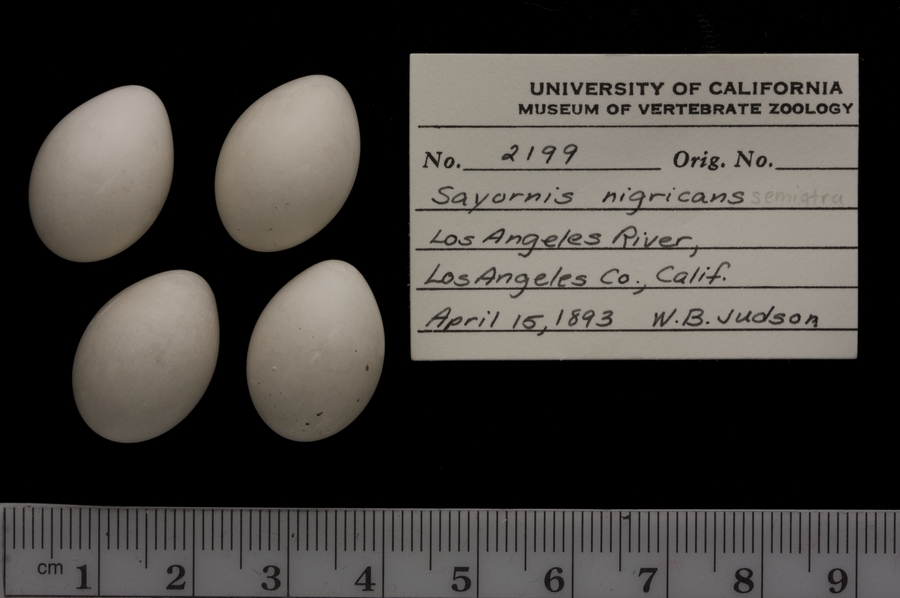 UNIVERSITY OF CALIFORNIA
MUSEUM OF VERTEBRATE ZOOLOGY
No. 2199 Orig. No.
Sayornis nigricans semiatra
Los Angeles River,
Los Angeles Co., Calif.
April 15, 1893 W.B. Judson
cm 1 2 3 4 5 6 7 8 9